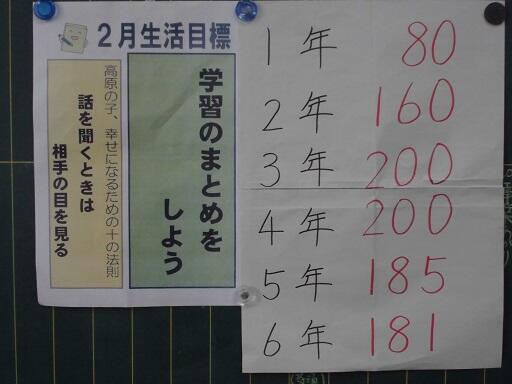 2月生活目標
学習のまとめを
しよう
高原の子、幸せになるための十の法則
話を聞くときは
相手の目を見る
1年 80
2年 160
3年 200
4年 200
5年 185
6年 181